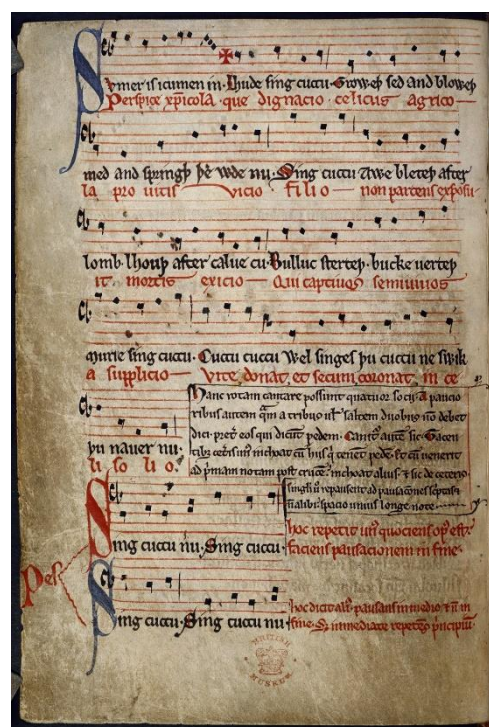 Sumer is icumen in. Lhude sing cuccu. Groweþ sed and bloweþ
Perspice xp̄icola. que dignacio celicus agrico
med and springþ þe wde nu. Sing cuccu Awe bleteþ after
la pro uitis vicio filio non parcens exposu
lomb. lhouþ after calue cu. Bulluc sterteþ. bucke uerteþ
it mortis exicio Qui captiuos semiuiuos
murie sing cuccu. Cuccu cuccu Wel singes þu cuccu ne swik
a supplicio Vite donat et secum coronat in ce
þu nauer nu.
li so li o.
Hanc rotam cantare possunt quatuor socij. A paucio
ribus autem qm̄ a tribus ul̄ saltem duobus nō debet
dici. pret̄ eos qui dicūt pedem. Canit᷒ autē sic. Tacen
tib᷒ cet̄is un᷒ inchoat cū hiis q̄ tenēt pedē. Et cū uenerit
ad p̄mam notam post crucē. inchoat alius. & sic de cet̄is
singli u̓ repausent ad pausaciones scptas &
ñ alibi. spacio unius longe note
Sing cuccu nu. Sing cuccu.
hoc repetit un᷒ quociens op᷒ est.
faciens pausacionem in fine.
Pes
Sing cuccu. Sing cuccu nu
hoc dicit ali᷒. pausans in medio & ñ in
fine. S; inmediate repetens p̄ncipiū.
BRITISH
MUSEUM